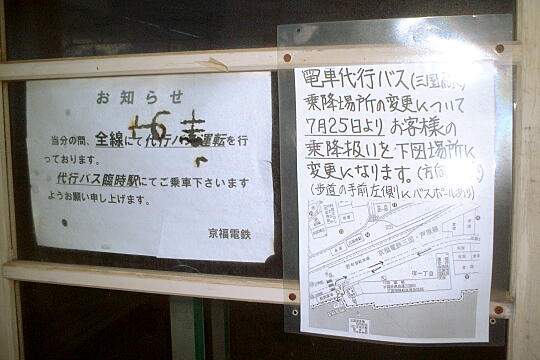 お知らせ
当分の間、全線にて代行バス運転を行
っております。
代行バス臨時駅にてご乗車下さいます
ようお願い申し上げます。
京福電鉄
電車代行バス(三国
乗降場所の変更について
7月25日より お客様の
乗降扱いを下図場所に
変更になります。(方向
(歩道の手前左側にバスポールあり)
京福電鉄三国・芦原線